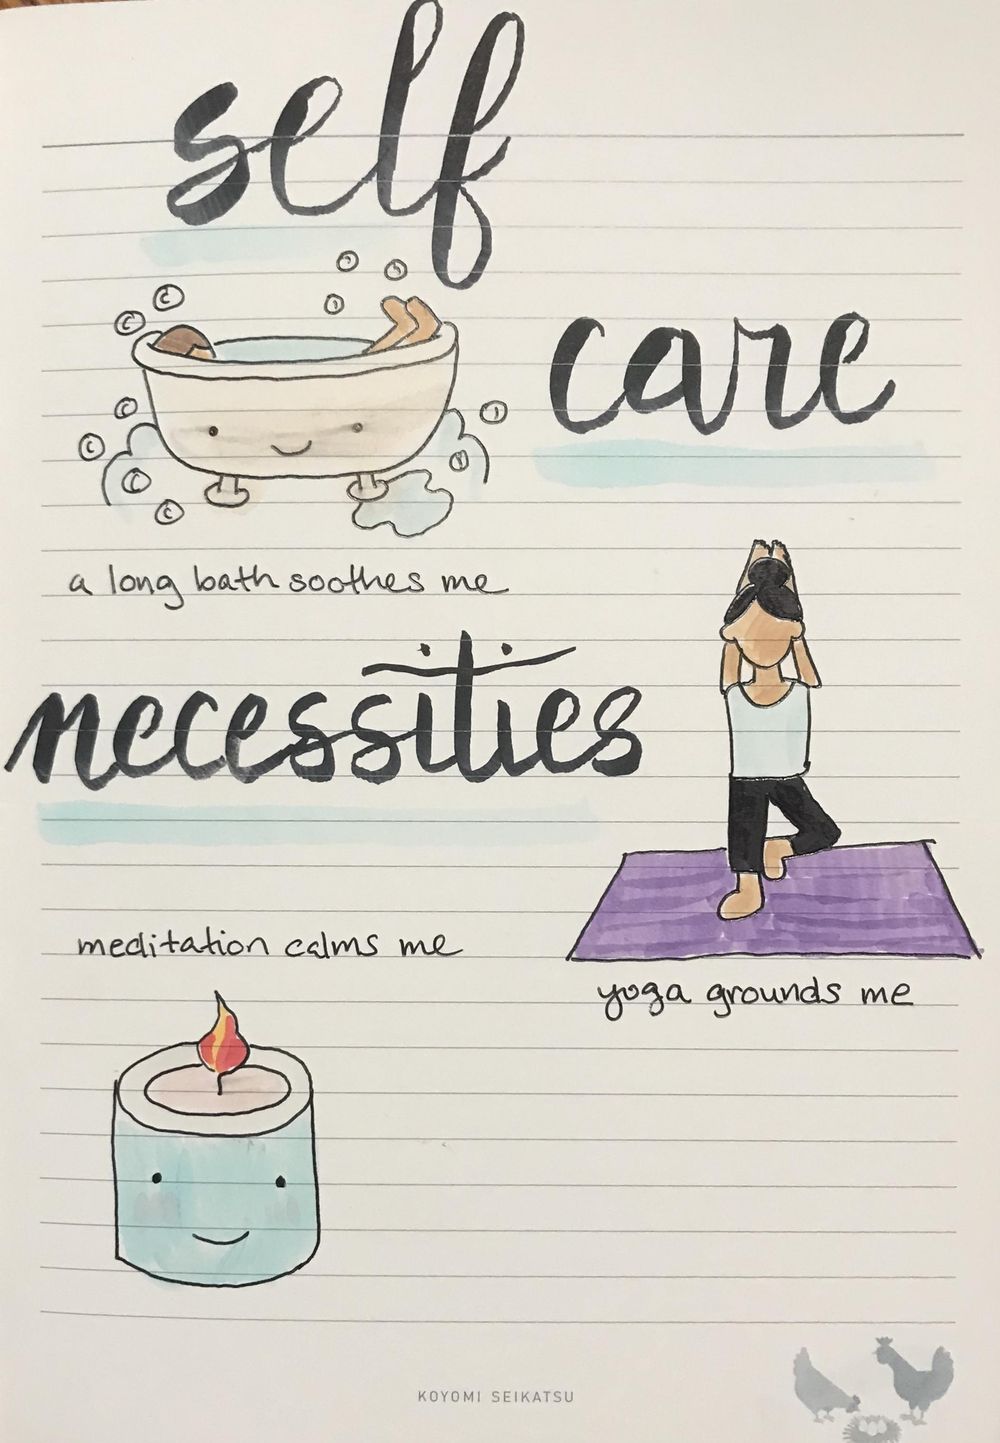 self
care
a long bath soothes me
necessities
meditation calms me
yoga grounds me
KOYOMI SEIKATSU